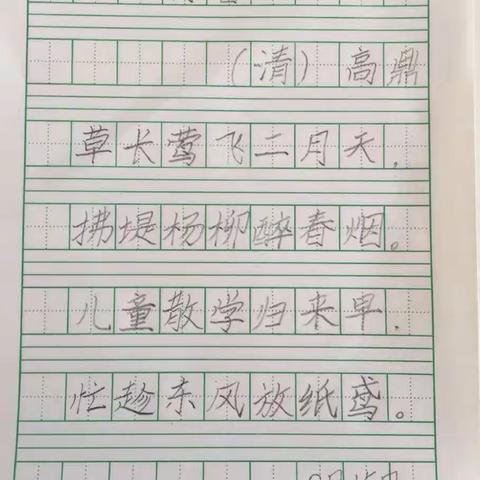 （清）高鼎
草长莺飞二月天，
拂堤杨柳醉春烟。
儿童散学归来早，
忙趁东风放纸鸢。